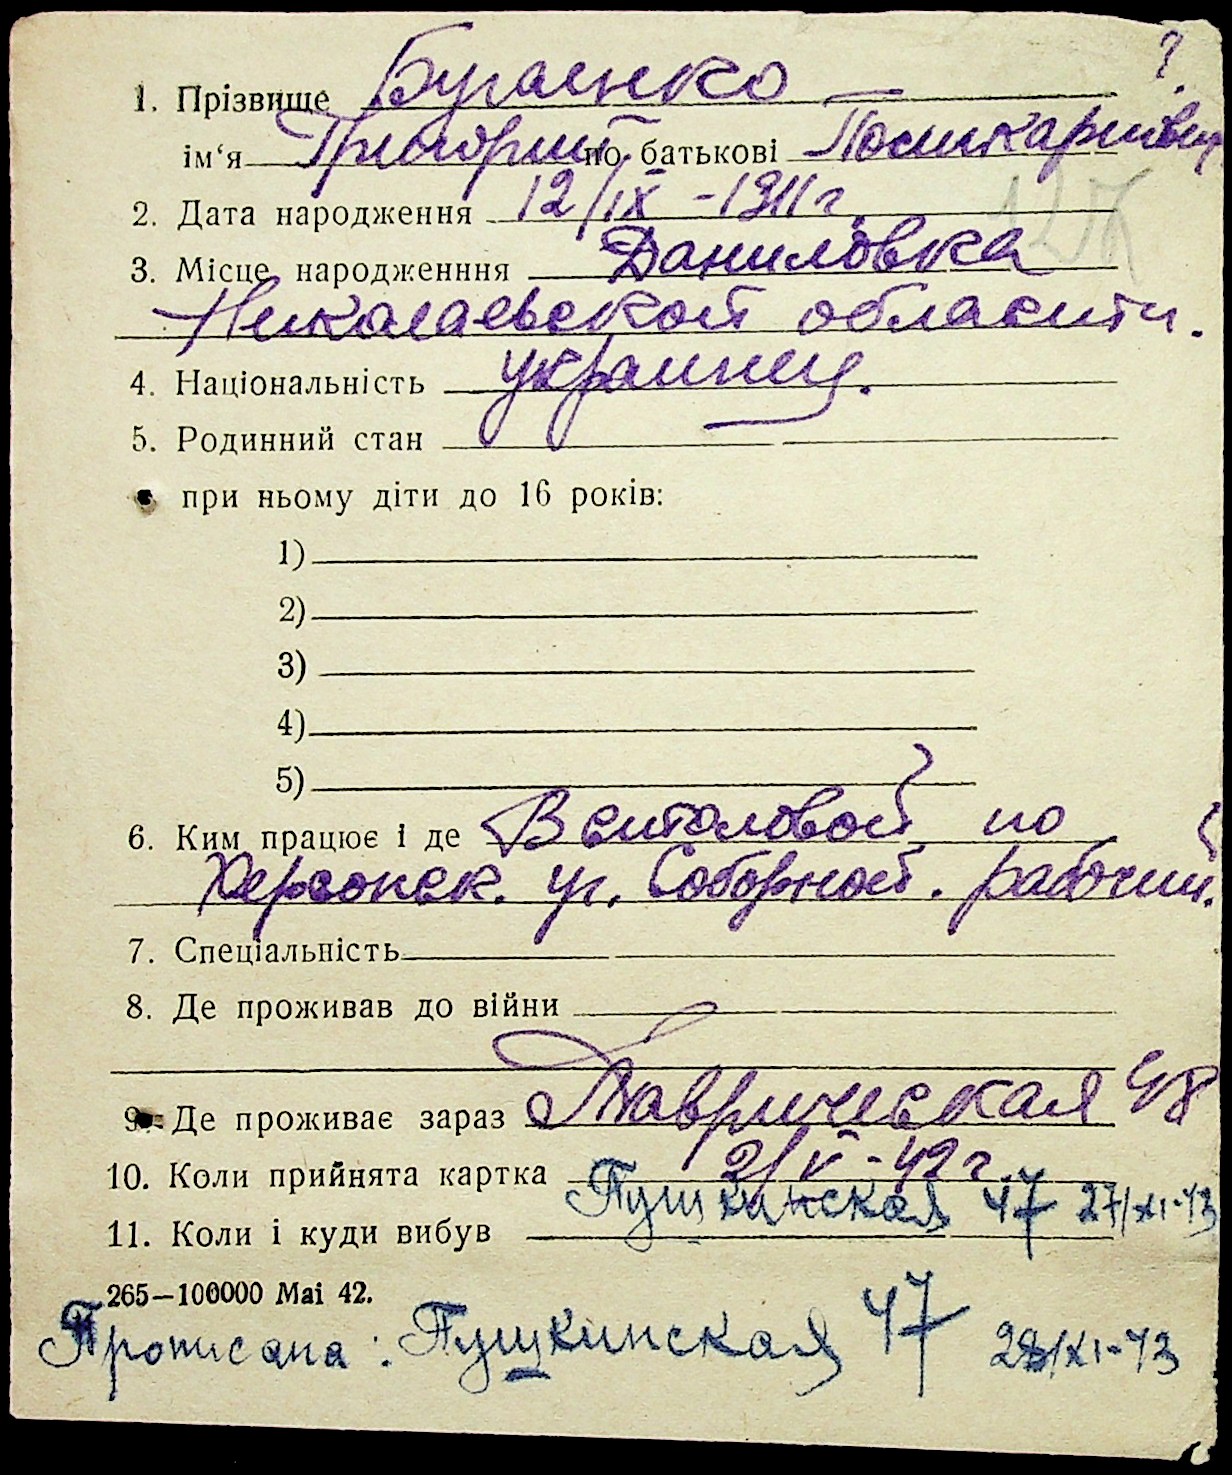 ?
1. Прізвище Бугаенко
ім‘я Григорий по батькові Поликарпович
2. Дата народження 12/IX - 1911 г.
3. Місце народженння Даниловка
Николаевской области.
4. Національність украинец.
5. Родинний стан
при ньому діти до 16 років:
1)
2)
3)
4)
5)
6. Ким працює і де В столовой по
Херсонск. уг. Соборной. рабочий.
7. Спеціальність
8. Де проживав до війни
9. Де проживає зараз Таврическая 48
10. Коли прийнята картка 2/V - 42 г.
11. Коли і куди вибув Пушкинская 47 27/XI-43
265—100000 Mai 42.
Прописана: Пушкинская 47 28/XI-43